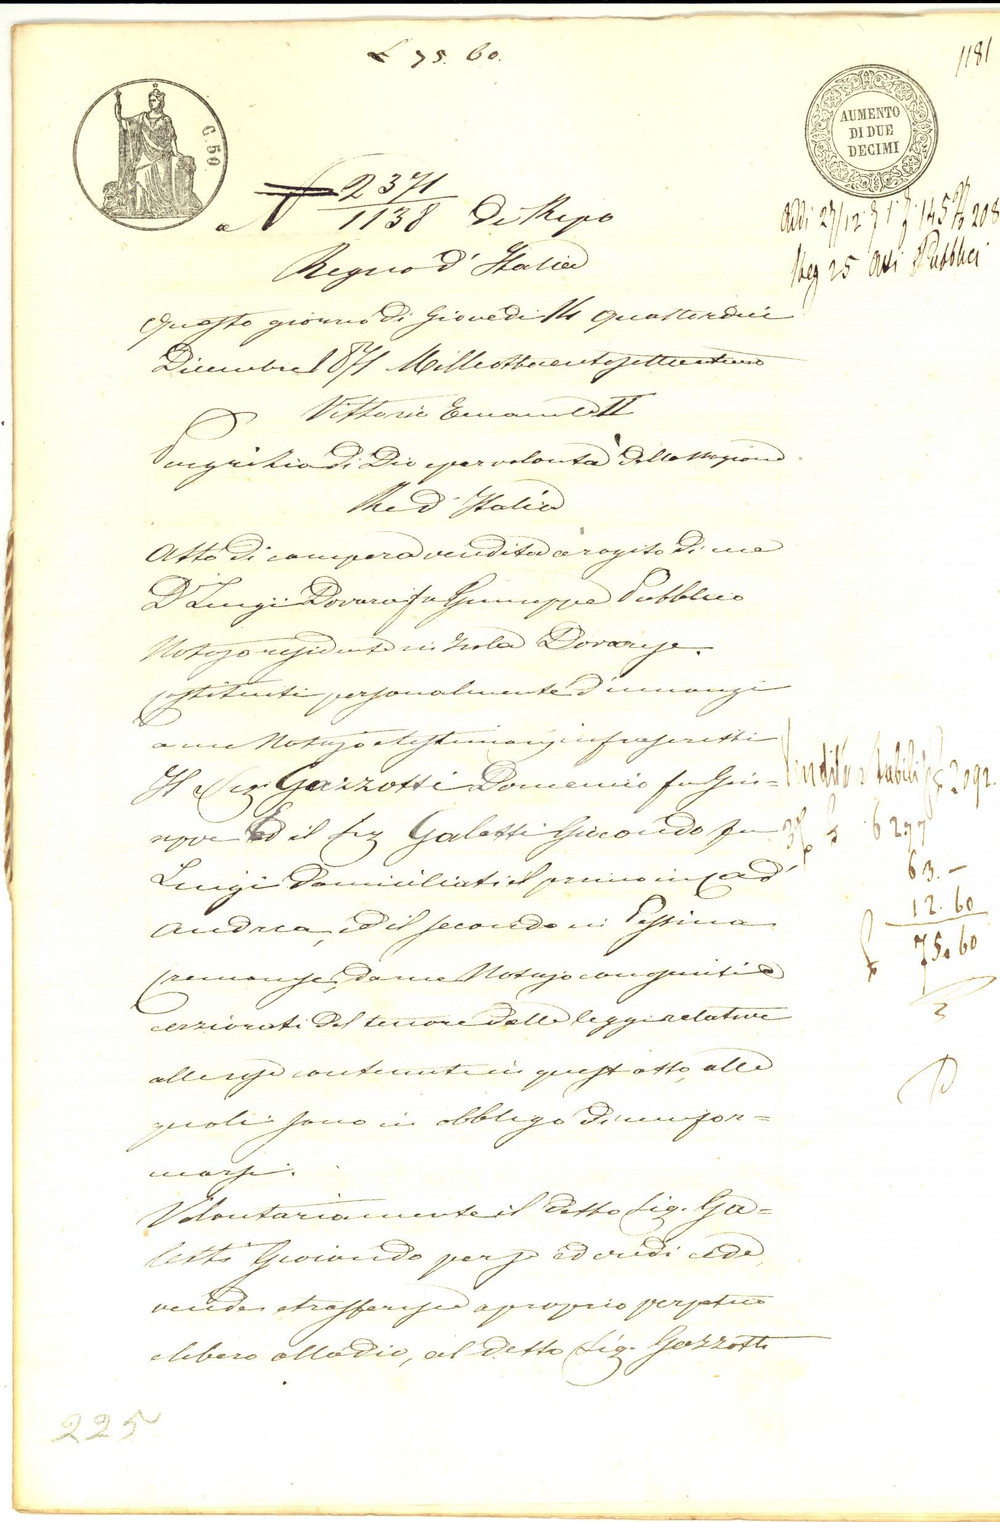 £ 75. 60.
1181
C. 50.
AUMENTO
DI DUE
DECIMI
a N 2371
1138 di Rep.o
Addi 27/12 71 145 208
Reg 25 Atti Pubblici
Regno d'Italia
Questo giorno di Giovedì 14 quattordici
Dicembre 1871 Milleottocentosettantuno
Vittorio Emanuele II
Per grazia di Dio e per volontà della Nazione
Re d'Italia
Atto di compera vendita a rogito di me
Dr Luigi Dovara fu Giuseppe Pubblico
Notajo residente in Isola Dovarese.
Costituiti personalmente d'innanzi
a me Notajo e testimonj infrascritti
Il Sig. Gazzotti Domenico fu Giu=
seppe ed il Sig. Galetti Giocondo fu
Luigi domiciliati il primo in Cà d'
Andrea, ed il secondo in Pessina
Cremonese, da me Notajo conosciuti e
cerziorati del tenore delle leggi relative
alle cose contenute in quest'atto, alle
quali sono in obbligo di unifor=
marsi.
Volontariamente il detto Sig. Ga=
letti Giocondo per se ed eredi cede,
vende e trasferisce a proprio perpetuo
e libero allodio, al detto Sig. Gazzotti
Vendita Stabili £ 2092.
£ 6277
63. -
12. 60
£ 75. 60
225